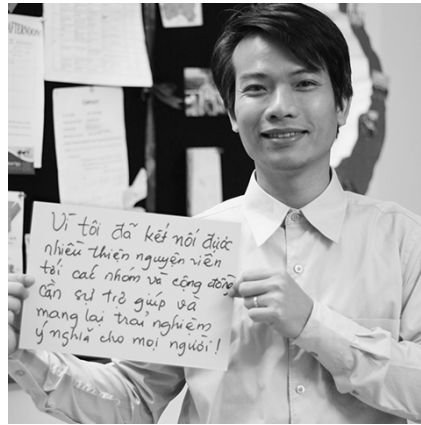 AFTERNOON
Vì tôi đã kết nối được
nhiều thiện nguyện viên
tới các nhóm và cộng đồng
cần sự trợ giúp và
mang lại trải nghiệm
ý nghĩa cho mọi người!